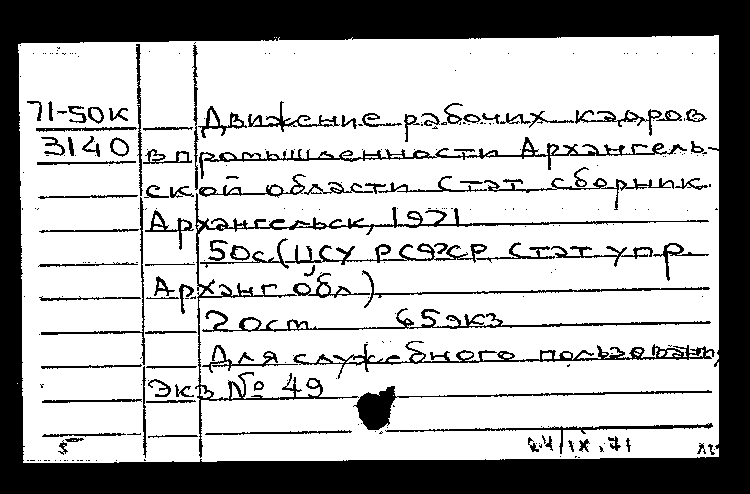 71-50К Движение рабочих кадров
3140 в промышленности Архангель-
ской области Стат. сборник.
Архангельск, 1971
50с (ЦСУ РСФСР Стат упр.
Арханг обл).
20см 65экз
Для служебного пользования
Экз № 49
5 24/IX.71